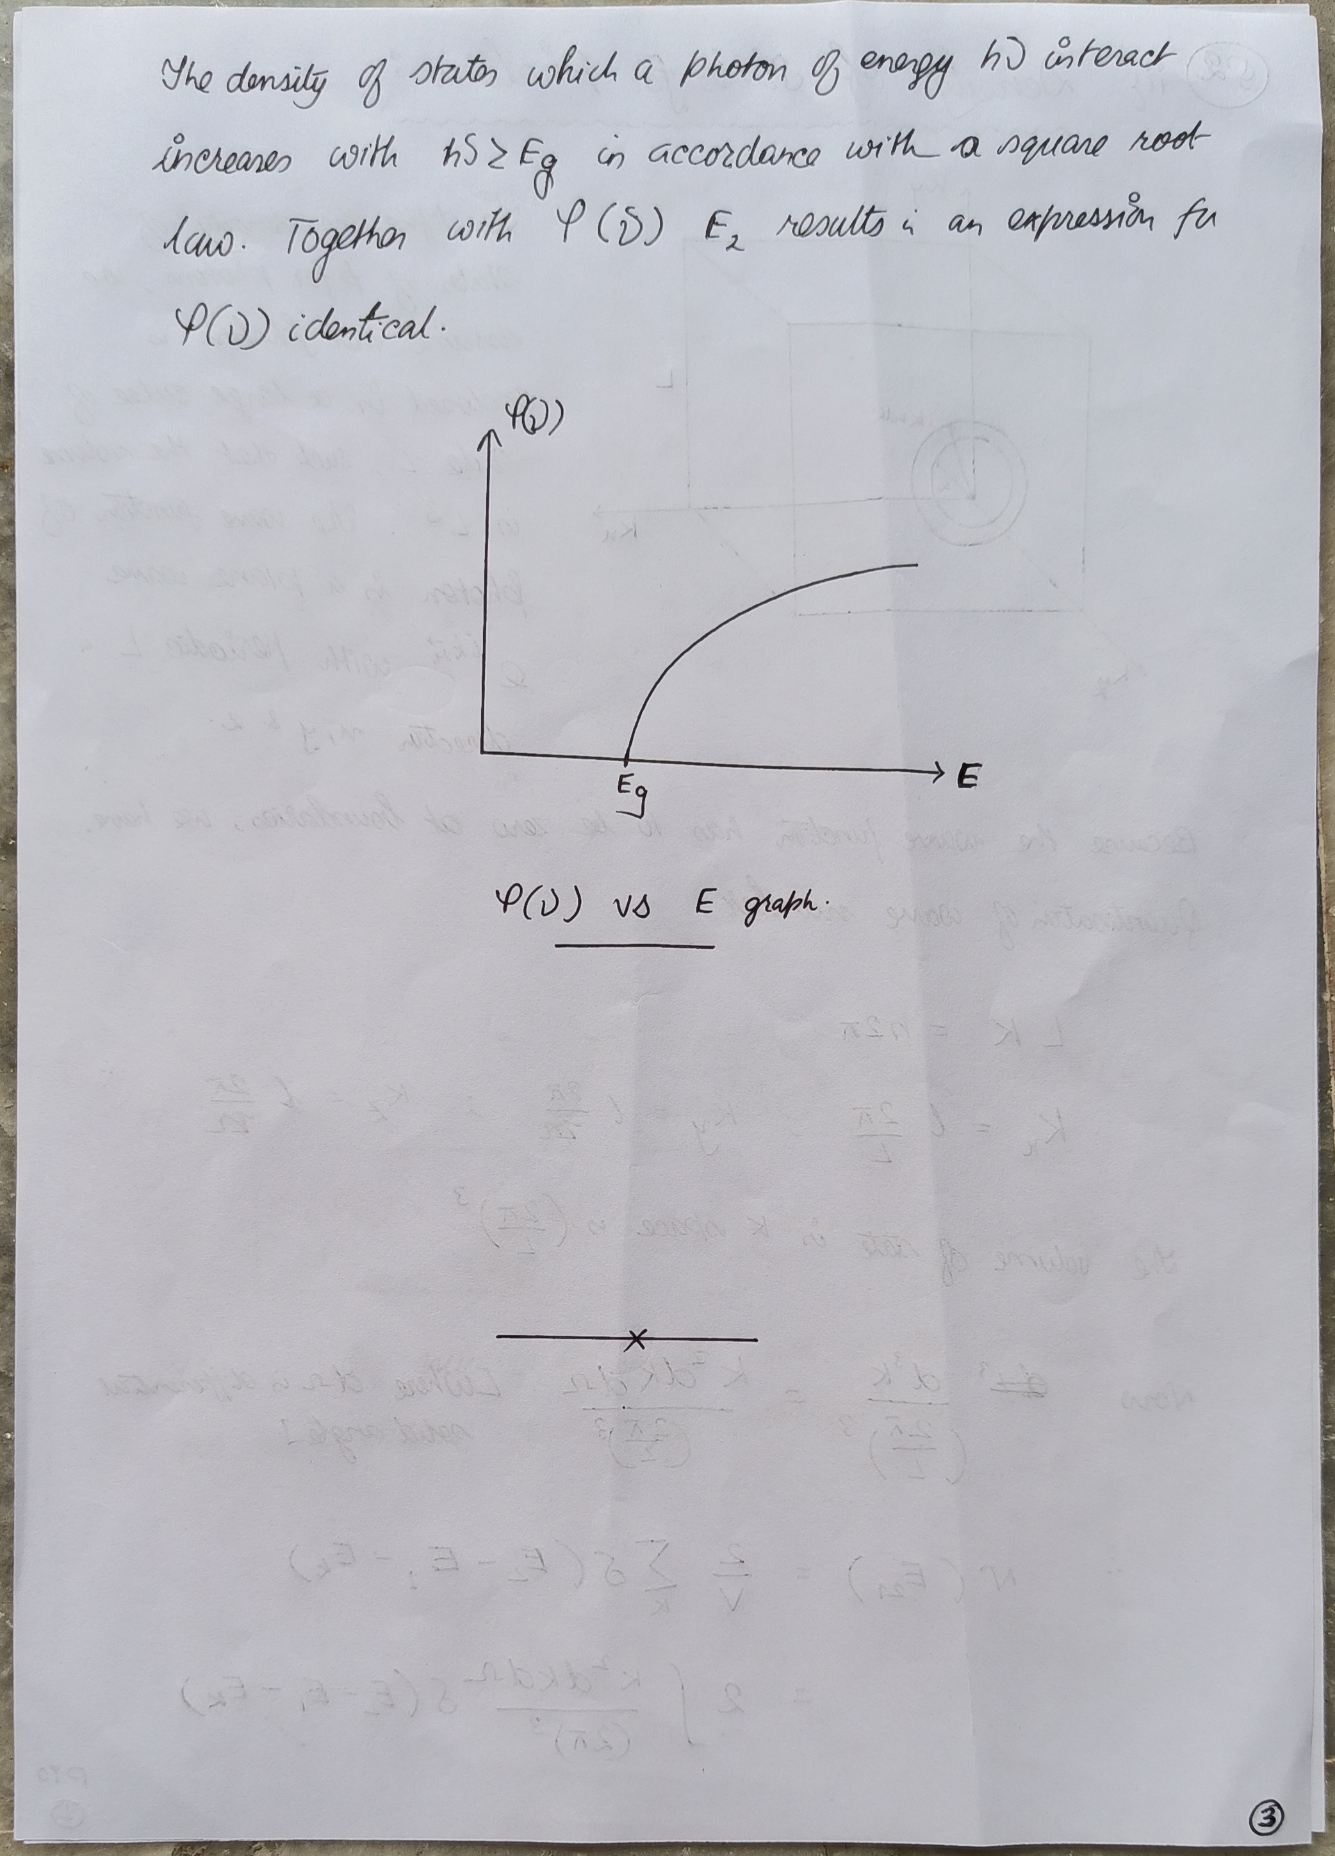 The density of states which a photon of energy hν interact
increases with hν ≥ Eg in accordance with a square root
law. Together with φ(ν) E₂ results in an expression for
φ(ν) identical.
φ(ν)
E
Eg
φ(ν) vs E graph.
3